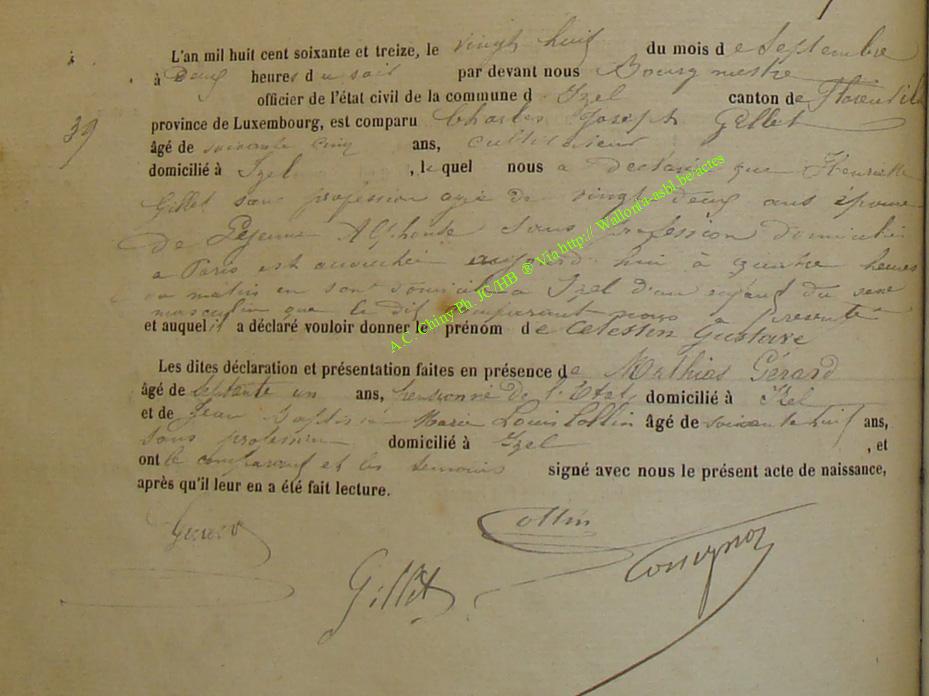 L'an mil huit cent soixante et treize, le vingt huit du mois de Septembre
à Deux heures du soir par devant nous Bourgmestre
officier de l'état civil de la commune d Izel canton de Florenville
39 province de Luxembourg, est comparu Charles Joseph Gillet
âgé de soixante cinq ans, cultivateur
domicilié à Izel, le quel nous a déclaré que Henriette
Gillet sans profession agée de vingt deux ans épouse
de Lejeune Alphonse sans profession domicilié
a Paris est accouchée aujourd'hui à quatre heures
du matin en sont domicile a Izel d'un enfant du sexe
masculin que le dit comparant nous a présenté
et auquel il a déclaré vouloir donner le prénom de Celestin Gustave
Les dites déclaration et présentation faites en présence de Mathias Gérard
âgé de septante un ans, pensionné de l'Etat, domicilié à Izel
et de Jean Baptiste Marie Louis Collin âgé de soixante huit ans,
sans profession domicilié à Izel, et
ont le comparant et les temoins signé avec nous le présent acte de naissance,
après qu'il leur en a été fait lecture.
Gérard Collin
Gillet
A.C. Chiny Ph. JC/HB ® Via http:// Wallonia-asbl.be/actes